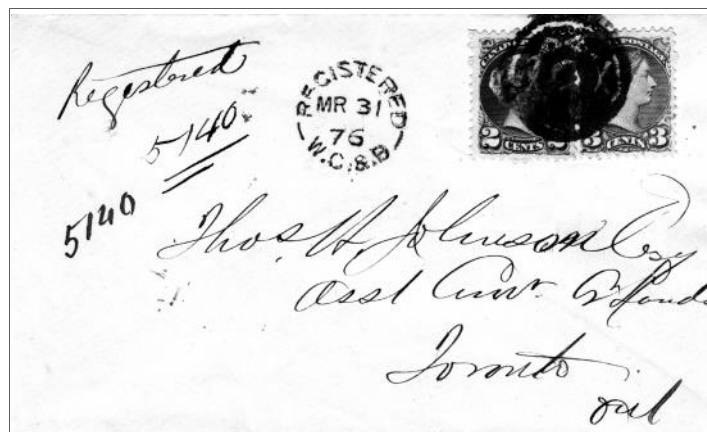 Registered
5140
REGISTERED
MR 31
76
W.C.&B
2 CENTS 3 CENTS 3
5140
Thos. H. Johnson Esq
Asst Comr.
Toronto
Ont